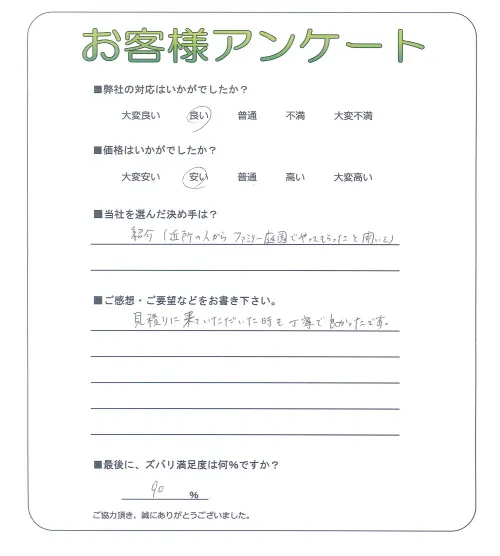 お客様アンケート
■弊社の対応はいかがでしたか？
大変良い 良い 普通 不満 大変不満
■価格はいかがでしたか？
大変安い 安い 普通 高い 大変高い
■当社を選んだ決め手は？
紹介（近所の人からファミリー庭園でやってもらったと聞いて）
■ご感想・ご要望などをお書き下さい。
見積りに来ていただいた時も丁寧で良かったです。
■最後に、ズバリ満足度は何%ですか？
90 %
ご協力頂き、誠にありがとうございました。